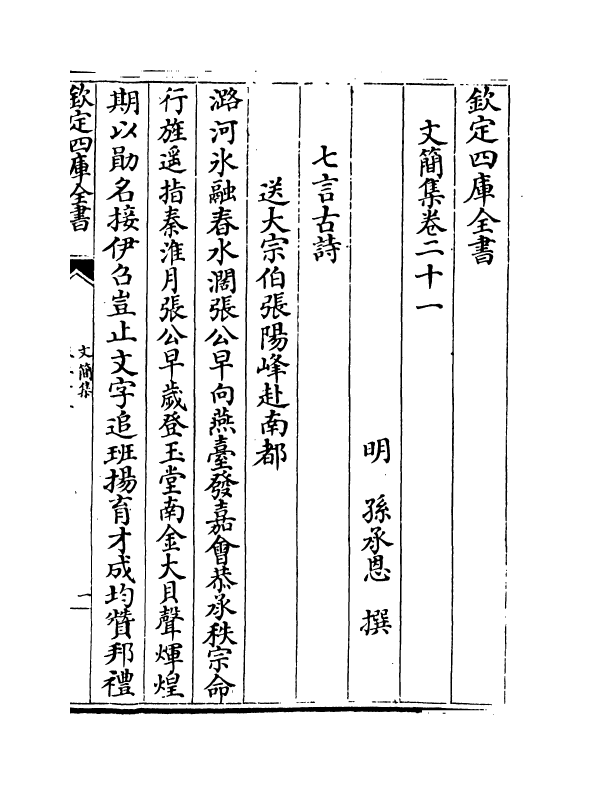 欽定四庫全書
文簡集卷二十一
明 孫承恩 撰
七言古詩
送大宗伯張陽峰赴南都
潞河氷融春水濶張公早向燕臺發嘉會恭承秩宗命
行旌遥指秦淮月張公早歲登玉堂南金大貝聲煇煌
期以勛名接伊召豈止文字追班揚育才成均賛邦禮
欽定四庫全書
文簡集
一